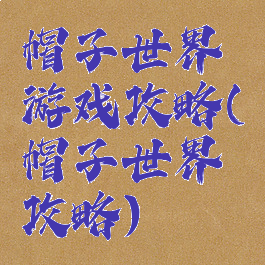 帽子世界
游戏攻略(
帽子世界
攻略)